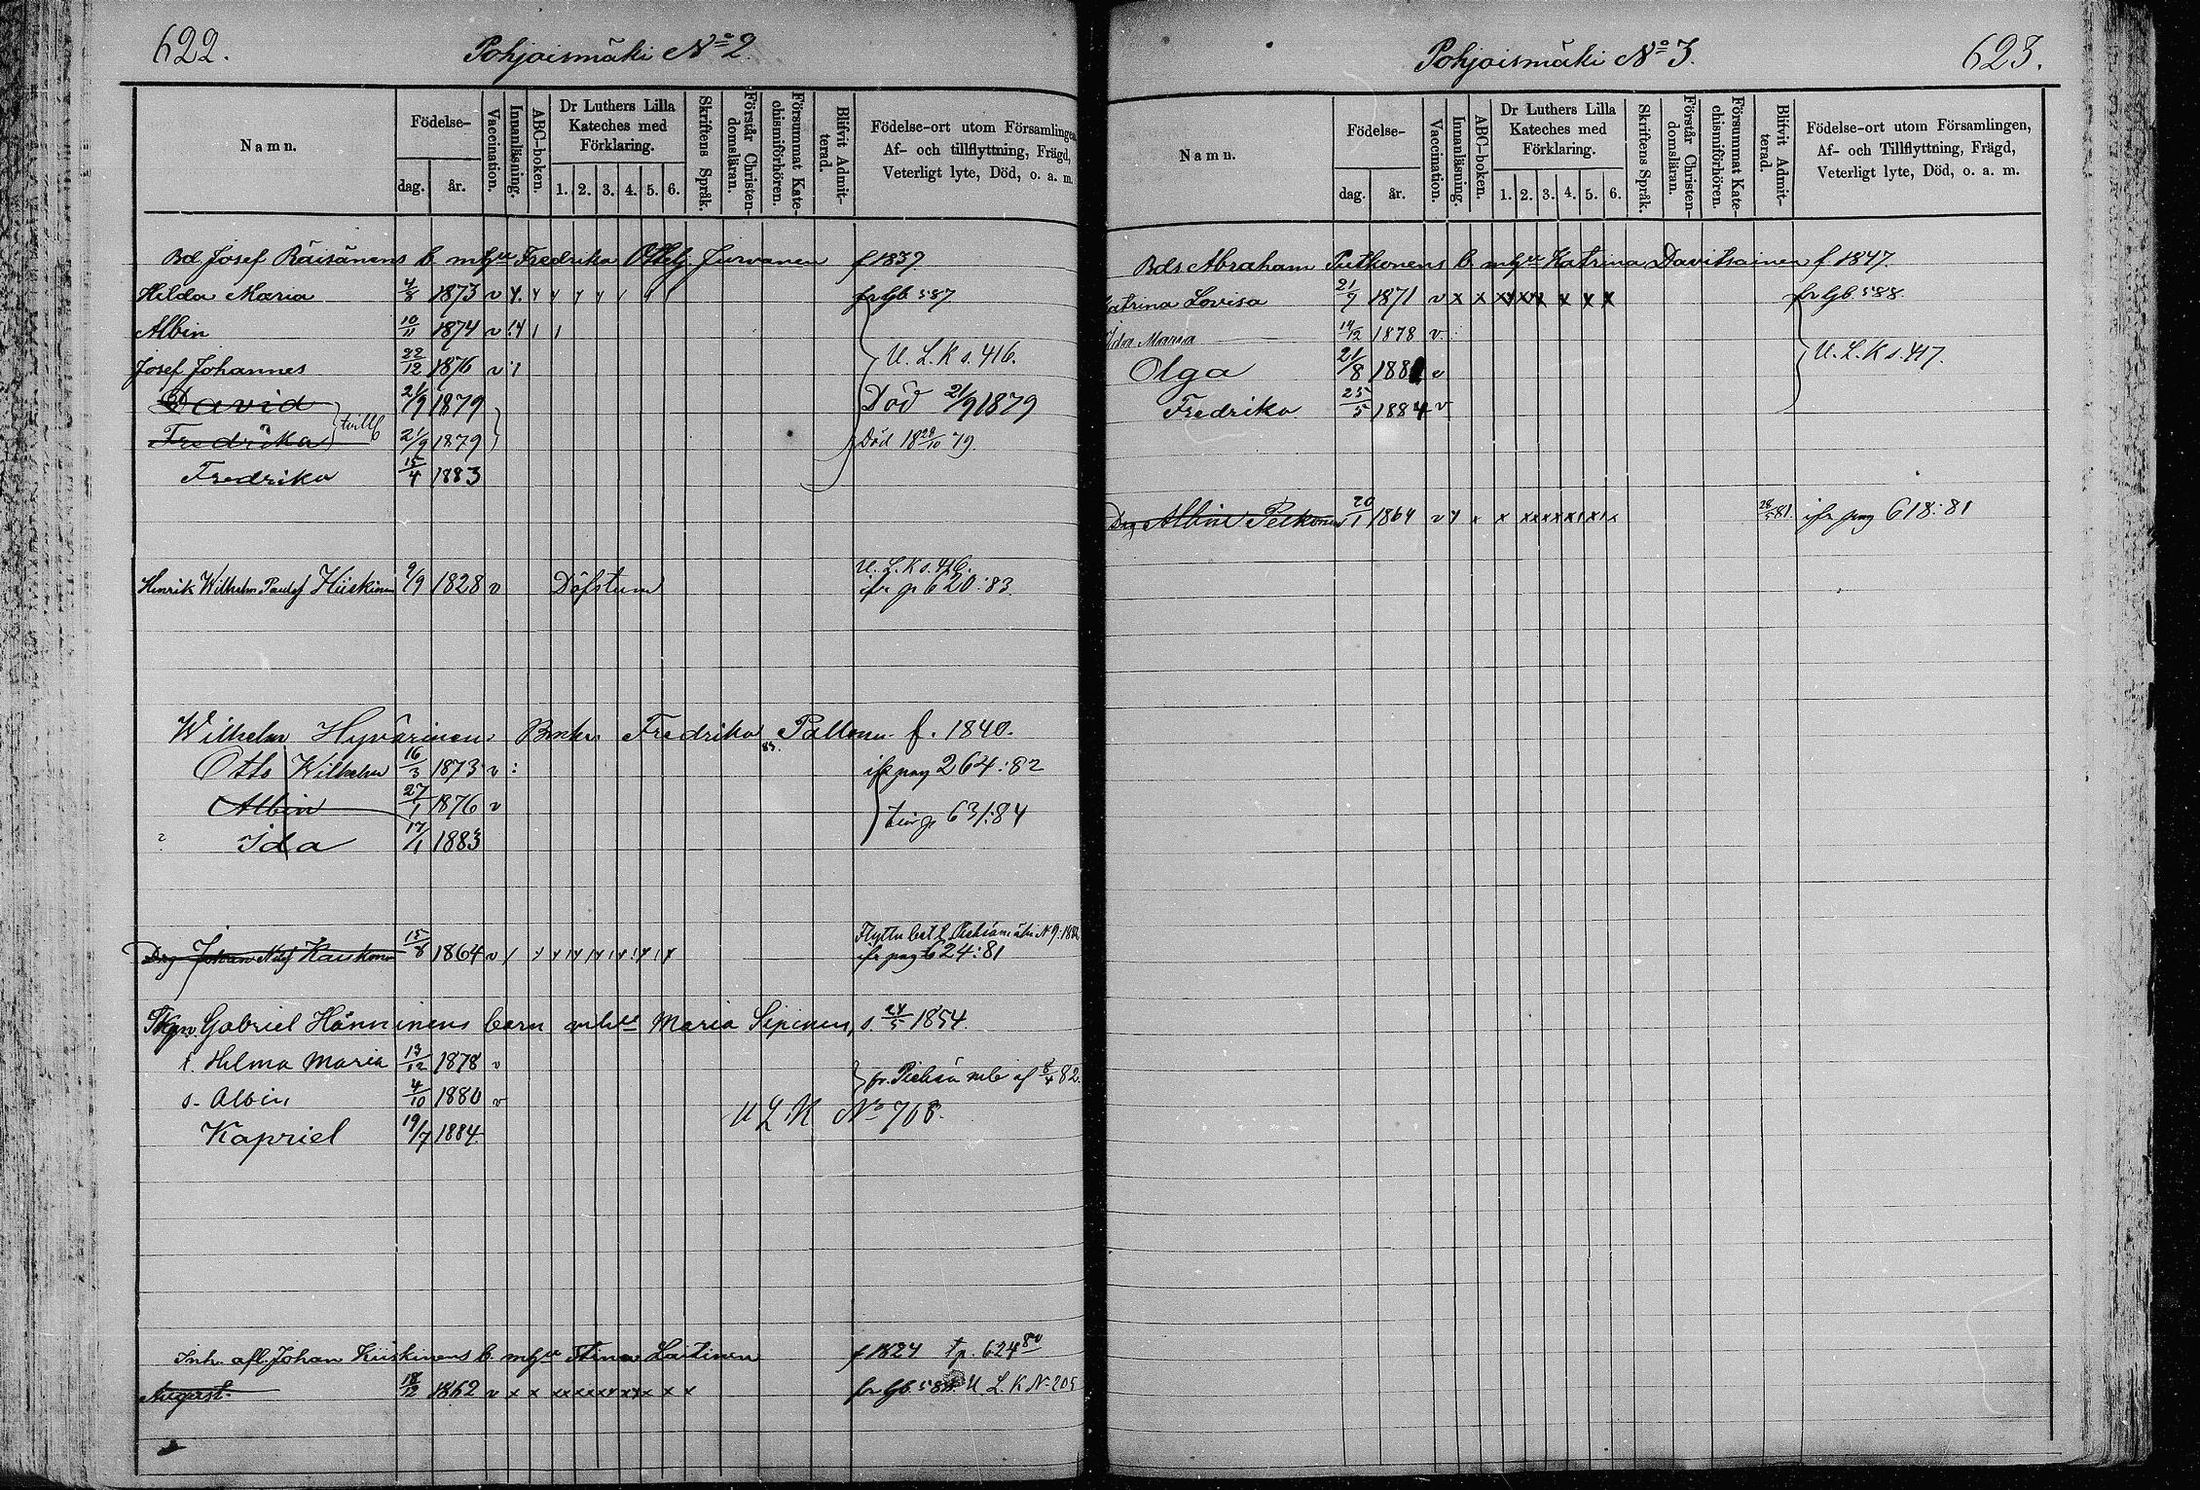 622.
Pohjoismäki No 2.
Namn.
Födelse-
dag.
år.
Vaccination.
Innanläsning.
ABC-boken.
Dr Luthers Lilla
Kateches med
Förklaring.
1. 2. 3. 4. 5. 6.
Skriftens Språk.
Förstår Christen-
domsläran.
Försummat Kate-
chismiförhören.
Blifvit Admit-
terad.
Födelse-ort utom Församlingen,
Af- och tillflyttning, Frägd,
Veterligt lyte, Död, o. a. m.
Bd. Josef Räisänens b. m hu Fredrika Jurvanen f 1839
Hilda Maria 4/8 1873 v fr Gb. 587
Albin 10/11 1874 v
Josef Johannes 22/12 1876 v U. L. K s. 416.
David 21/9 1879 Död 21/9 1879
Fredrika 21/9 1879 Död 18 29/10 79.
tvill
Fredrika 15/4 1883
U. L. K s. 416.
Henrik Wilhelm Kiiskinen 9/9 1828 v Döfstum ifr p 620:83.
Wilhelm Hyvärinens Fredrika f. 1840.
Otto Wilhelm 16/3 1873 v : ifr pag 264:82
Albin 27/1 1876 v p 631:84
Ida 17/1 1883
N 9:
Drg Johan 15/8 1864 v ifr pag 624:81
Gabriel Hänninens barn Maria Sipinen, s 24/5 1854.
t. Helma Maria 13/12 1878 v
s. Albin 4/10 1880 v fr. Pieksä af 8/4 82.
U L K No 708.
Kapriel 19/7 1884
Inh. afl. Johan Kiiskinens b. m hu Stina Laitinen f 1824 tp. 624 80
August. 18/12 1862 v x x xx xx x x x x x x fr Gb. U L. K N 205
Pohjoismäki No 3.
623.
Namn.
Födelse-
dag.
år.
Vaccination.
Innanläsning.
ABC-boken.
Dr Luthers Lilla
Kateches med
Förklaring.
1. 2. 3. 4. 5. 6.
Skriftens Språk.
Förstår Christen-
domsläran.
Försummat Kate-
chismiförhören.
Blifvit Admit-
terad.
Födelse-ort utom Församlingen,
Af- och Tillflyttning, Frägd,
Veterligt lyte, Död, o. a. m.
Bds Abraham Putkonens b. m hu Katrina Davitsainen f. 1847.
Katrina Lovisa 21/9 1871 v x x x x x x x x fr Gb. 588.
Ida Maria 14/12 1878 v
Olga 21/8 188 v U. L. K s. 417.
Fredrika 25/5 1884 v
Drg Albin Pelkonen 20/1 1864 v 81. ifr pag 618:81